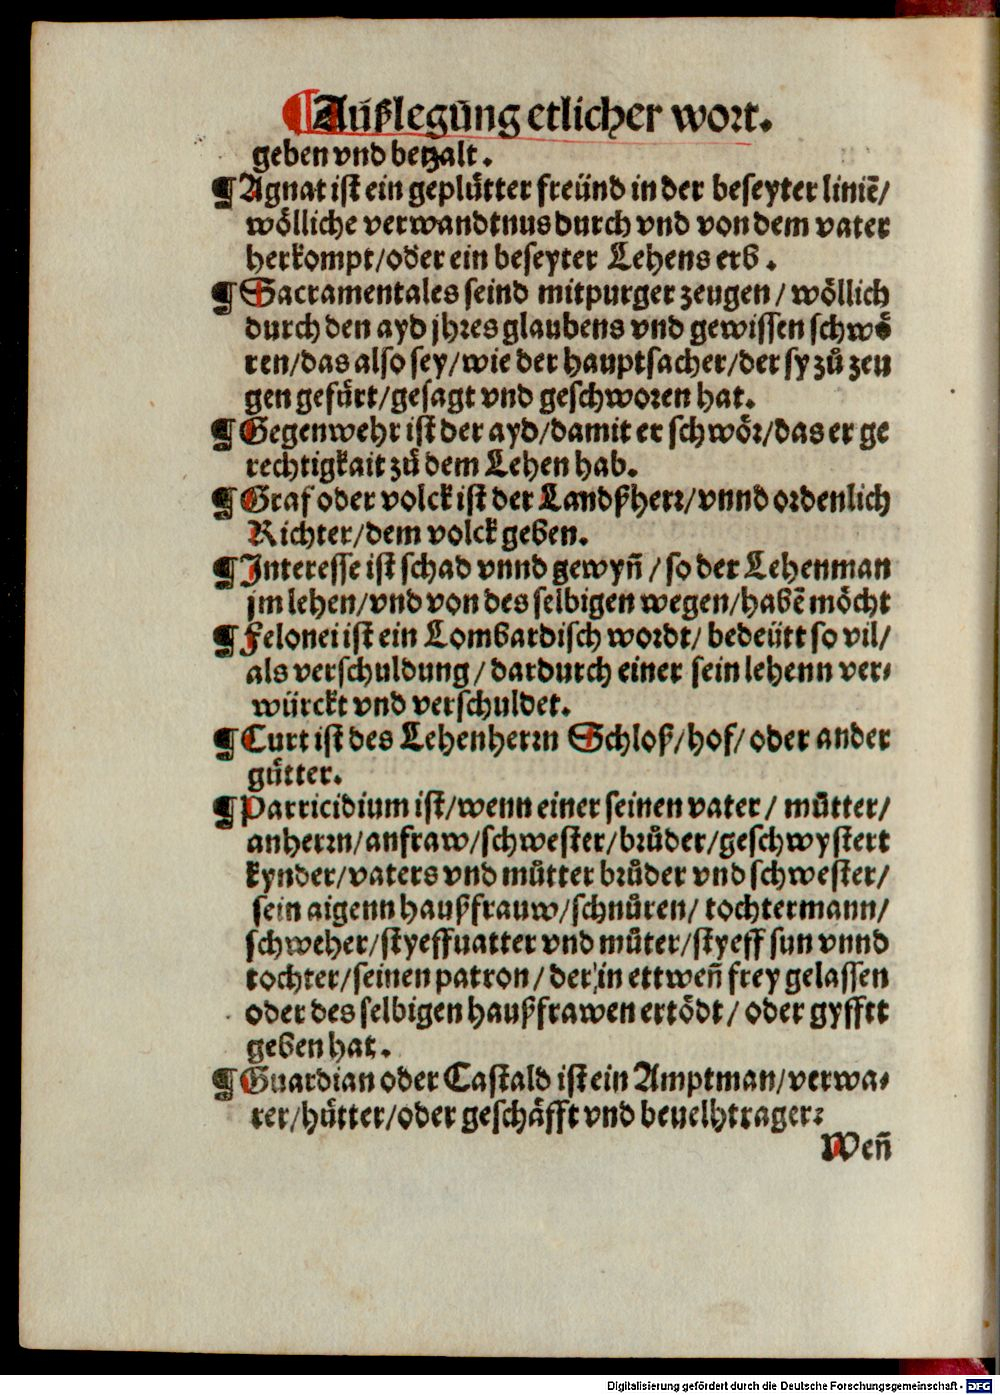 ¶Außlegūng etlicher wort.
geben vnd betzalt.
¶Agnat ist ein geplůtter freünd in der beseyter liniē/
wölliche verwandtnus durch vnd von dem vater
herkompt/oder ein beseyter Lehens erb.
¶Sacramentales seind mitpurger zeugen/ wöllich
durch den ayd jhres glaubens vnd gewissen schwö
ren/das also sey/wie der hauptsacher/der sy zů zeu
gen gefürt/gesagt vnd geschworen hat.
¶Gegenwehr ist der ayd/damit er schwör/das er ge
rechtigkait zů dem Lehen hab.
¶Graf oder volck ist der Landßherr/vnnd ordenlich
Richter/dem volck geben.
¶Interesse ist schad vnnd gewyñ/so der Lehenman
jm lehen/vnd von des selbigen wegen/habē möcht
¶Felonei ist ein Lombardisch wordt/ bedeütt so vil/
als verschuldung/ dardurch einer sein lehenn ver⸗
würckt vnd verschuldet.
¶Curt ist des Lehenherrn Schloß/hof/ oder ander
gůtter.
¶Parricidium ist/wenn einer seinen vater/ můtter/
anherrn/anfraw/schwester/brůder/geschwystert
kynder/vaters vnd můtter brůder vnd schwester/
sein aigenn haußfrauw/schnůren/ tochtermann/
schweher/styeffuatter vnd můter/styeff sun vnnd
tochter/seinen patron/ der in ettweñ frey gelassen
oder des selbigen haußfrawen ertödt/ oder gyfftt
geben hat.
¶Guardian oder Castald ist ein Amptman/verwa⸗
rer/hůtter/oder geschäfft vnd beuelhtrager:
Weñ
Digitalisierung gefördert durch die Deutsche Forschungsgemeinschaft - DFG